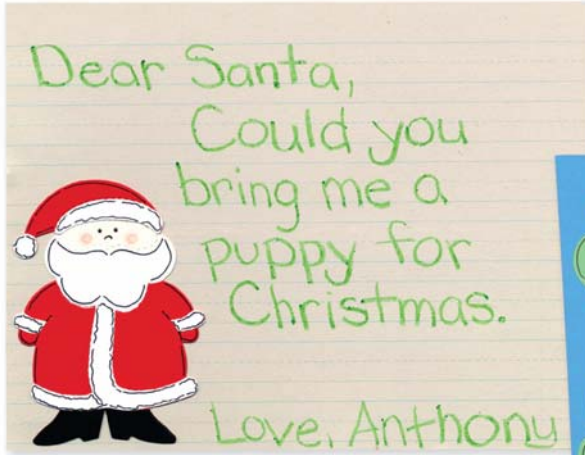 Dear Santa,
Could you
bring me a
puppy for
Christmas.
Love, Anthony